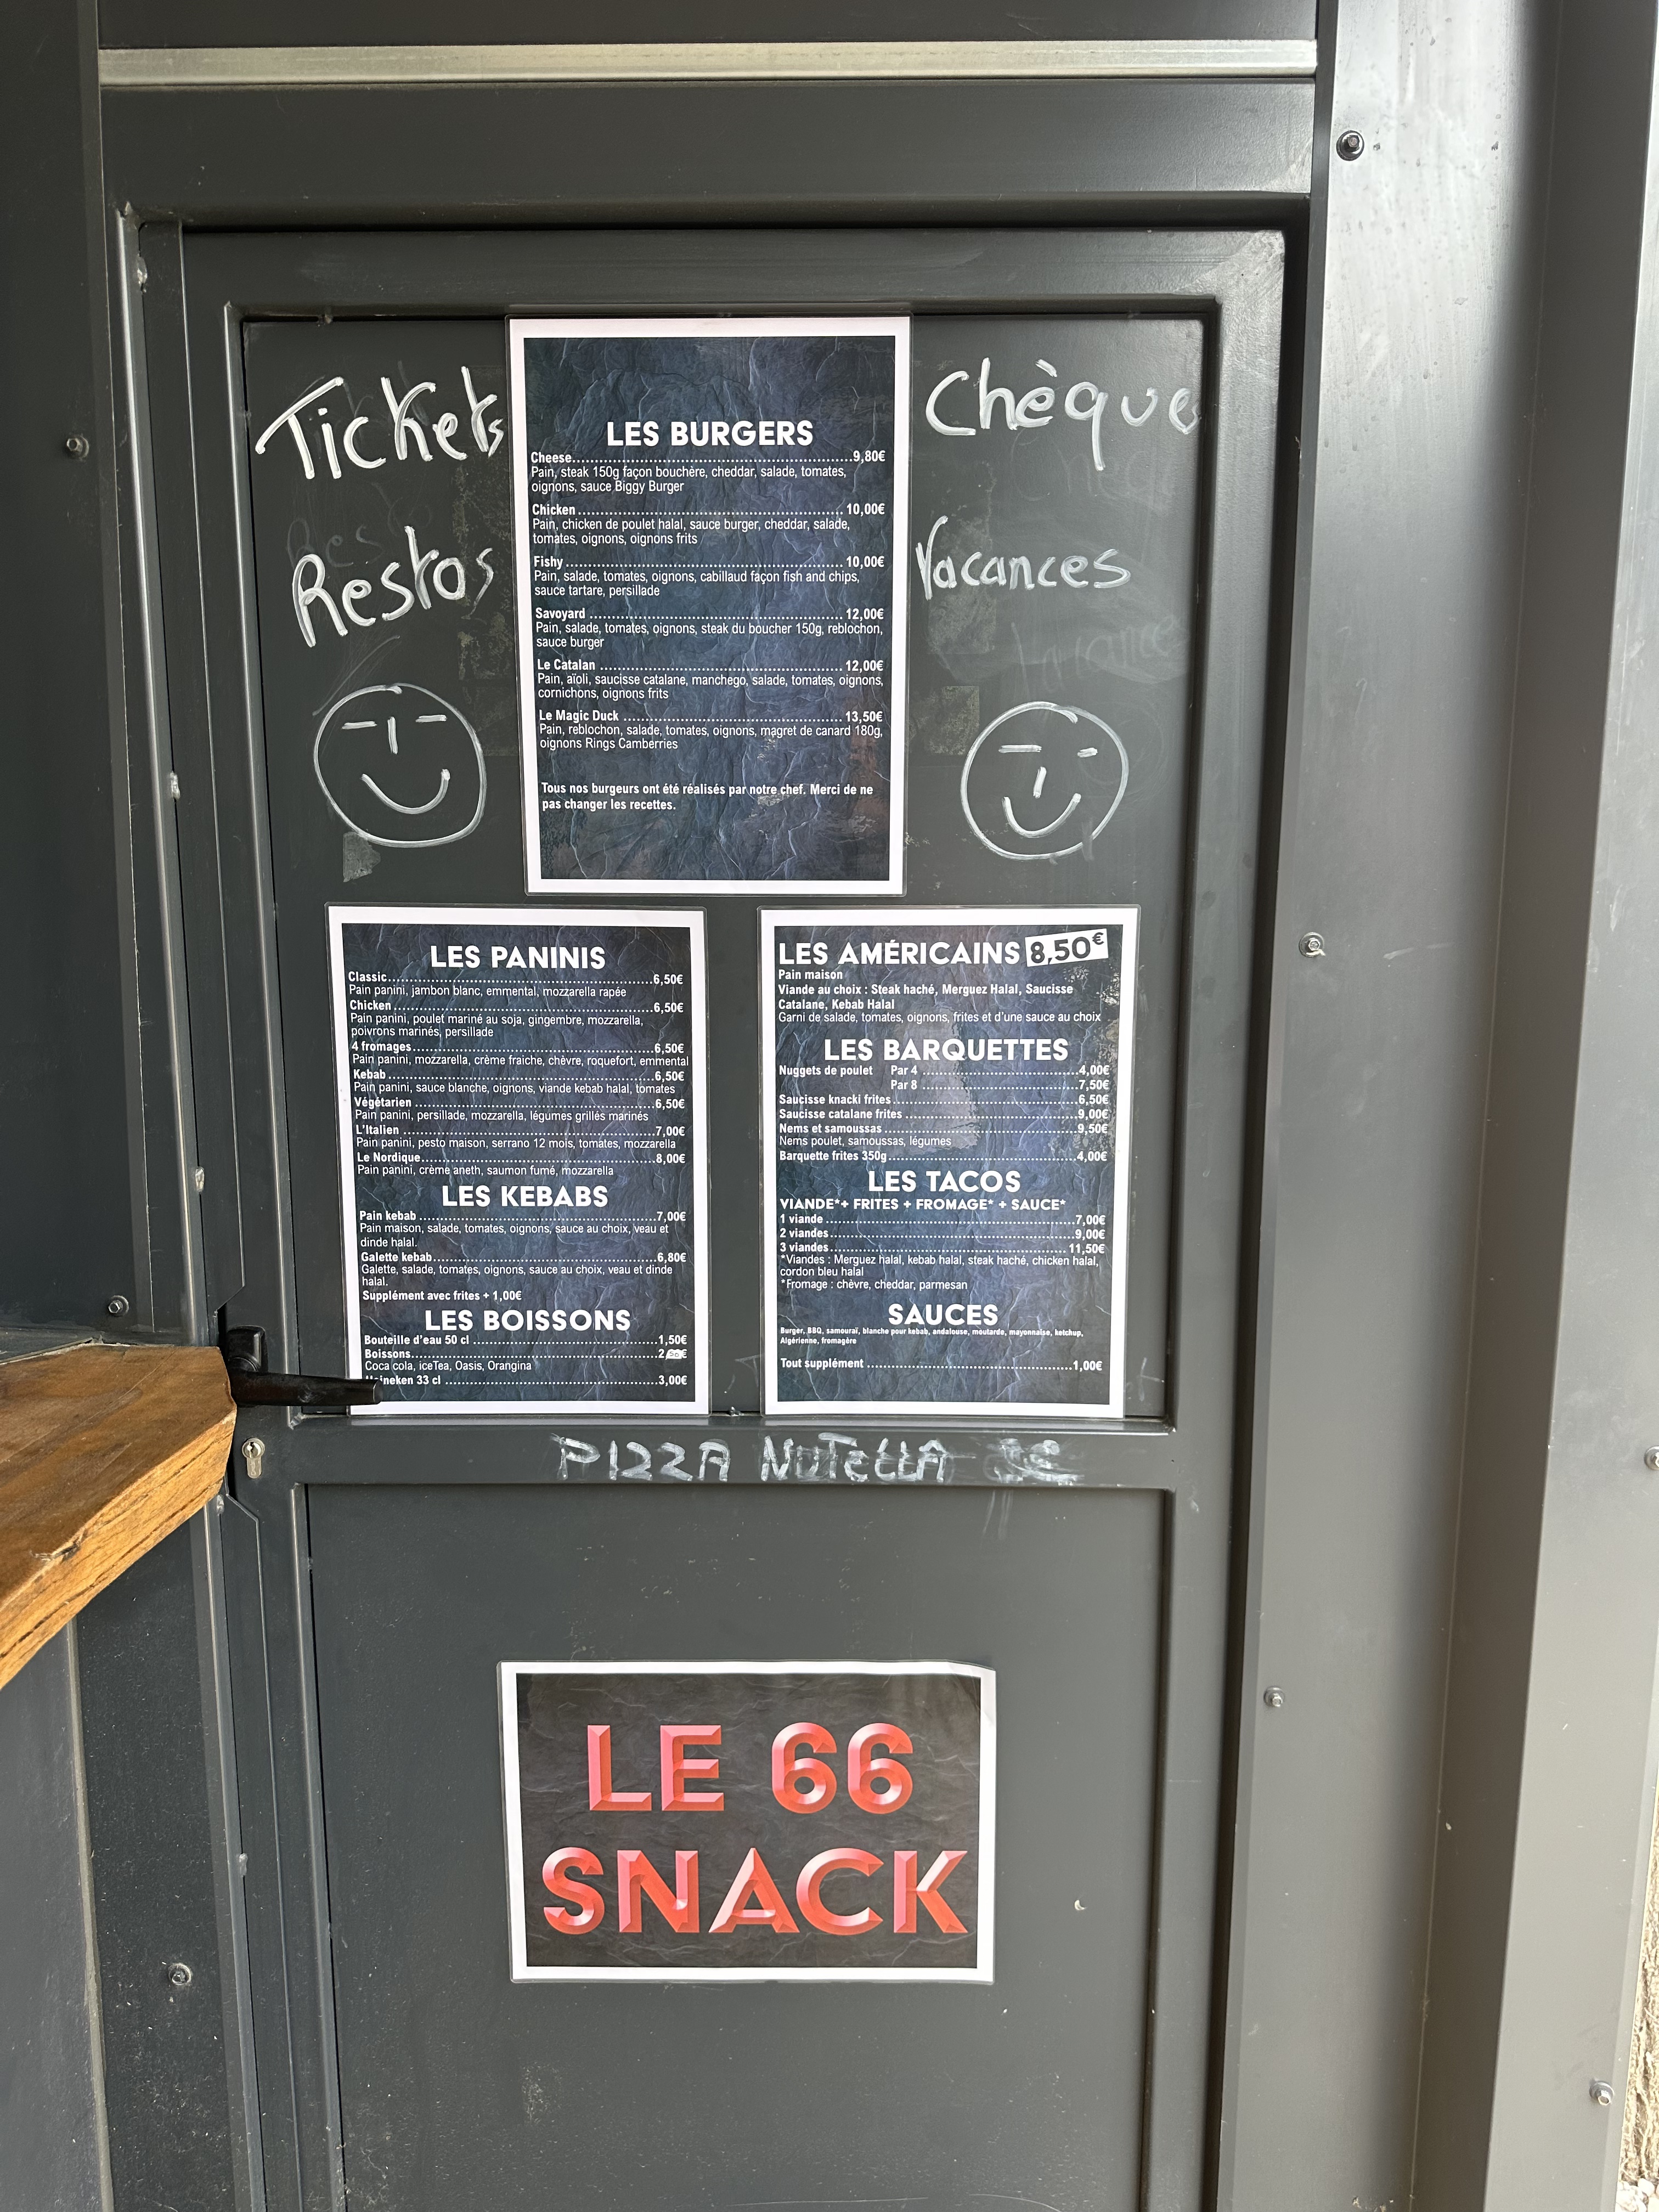 Tickets
Restos
Chèque
Vacances
LES BURGERS
Cheese..........9,80€
Pain, steak 150g façon bouchère, cheddar, salade, tomates,
oignons, sauce Biggy Burger
Chicken..........10,00€
Pain, chicken de poulet halal, sauce burger, cheddar, salade,
tomates, oignons, oignons frits
Fishy..........10,00€
Pain, salade, tomates, oignons, cabillaud façon fish and chips,
sauce tartare, persillade
Savoyard..........12,00€
Pain, salade, tomates, oignons, steak du boucher 150g, reblochon,
sauce burger
Le Catalan..........12,00€
Pain, aïoli, saucisse catalane, manchego, salade, tomates, oignons,
cornichons, oignons frits
Le Magic Duck..........13,50€
Pain, reblochon, salade, tomates, oignons, magret de canard 180g,
oignons Rings Camberries
Tous nos burgeurs ont été réalisés par notre chef. Merci de ne
pas changer les recettes.
LES PANINIS
Classic..........6,50€
Pain panini, jambon blanc, emmental, mozzarella rapée
Chicken..........6,50€
Pain panini, poulet mariné au soja, gingembre, mozzarella,
poivrons marinés, persillade
4 fromages..........6,50€
Pain panini, mozzarella, crème fraiche, chèvre, roquefort, emmental
Kebab..........6,50€
Pain panini, sauce blanche, oignons, viande kebab halal, tomates
Végétarien..........6,50€
Pain panini, persillade, mozzarella, légumes grillés marinés
L'Italien..........7,00€
Pain panini, pesto maison, serrano 12 mois, tomates, mozzarella
Le Nordique..........8,00€
Pain panini, crème aneth, saumon fumé, mozzarella
LES KEBABS
Pain kebab..........7,00€
Pain maison, salade, tomates, oignons, sauce au choix, veau et
dinde halal.
Galette kebab..........6,80€
Galette, salade, tomates, oignons, sauce au choix, veau et dinde
halal.
Supplément avec frites + 1,00€
LES BOISSONS
Bouteille d'eau 50 cl..........1,50€
Boissons..........
Coca cola, iceTea, Oasis, Orangina
33 cl..........3,00€
LES AMÉRICAINS 8,50€
Pain maison
Viande au choix : Steak haché, Merguez Halal, Saucisse
Catalane, Kebab Halal
Garni de salade, tomates, oignons, frites et d'une sauce au choix
LES BARQUETTES
Nuggets de poulet Par 4..........4,00€
Par 8..........7,50€
Saucisse knacki frites..........6,50€
Saucisse catalane frites..........9,00€
Nems et samoussas..........9,50€
Nems poulet, samoussas, légumes
Barquette frites 350g..........4,00€
LES TACOS
VIANDE*+ FRITES + FROMAGE* + SAUCE*
1 viande..........7,00€
2 viandes..........9,00€
3 viandes..........11,50€
*Viandes : Merguez halal, kebab halal, steak haché, chicken halal,
cordon bleu halal
*Fromage : chèvre, cheddar, parmesan
SAUCES
Burger, BBQ, samouraï, blanche pour kebab, andalouse, moutarde, mayonnaise, ketchup,
Algérienne, fromagère
Tout supplément..........1,00€
PIZZA NUTELLA
LE 66
SNACK